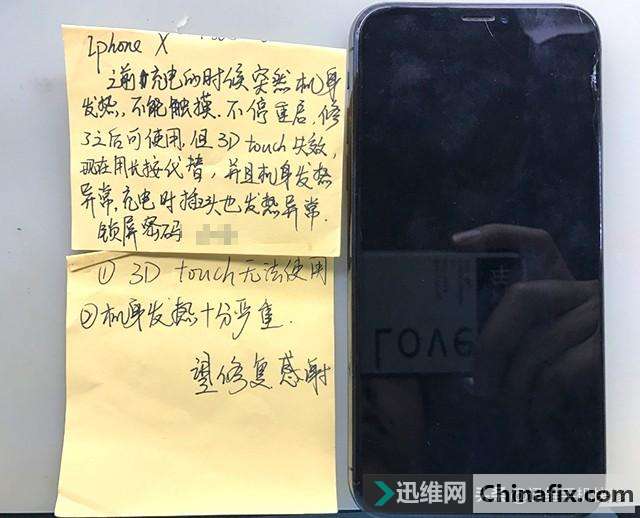 Iphone X
之前充电的时候突然机身
发热,不能触摸.不停重启.修
了之后可使用,但3D touch失效,
现在用长按代替,并且机身发热
异常,充电时插头也发热异常.
锁屏密码
① 3D touch无法使用
②机身发热十分严重.
望修复感谢
LOVE
迅维网
Chinafix.com